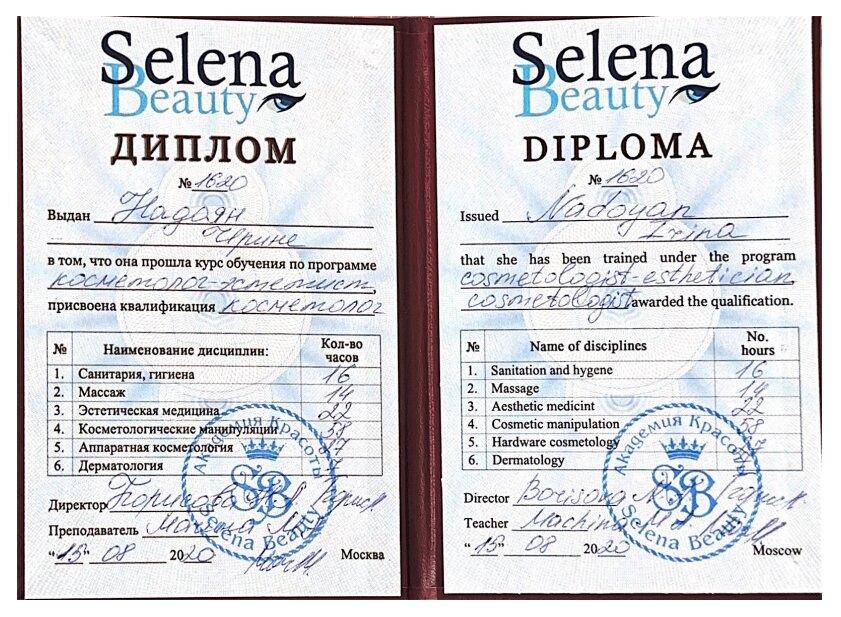 Selena
Beauty
ДИПЛОМ
№ 1620
Выдан Надоян
Ирине
в том, что она прошла курс обучения по программе
косметолог-эстетист,
присвоена квалификация косметолог
№ Наименование дисциплин: Кол-во часов
1. Санитария, гигиена 16
2. Массаж 14
3. Эстетическая медицина 22
4. Косметологические манипуляции 58
5. Аппаратная косметология
6. Дерматология
Директор Борисова
Преподаватель
"15" 08 2020 Москва
Академия Красоты
SB
Selena Beauty
Selena
Beauty
DIPLOMA
№ 1620
Issued Nadoyan
Irina
that she has been trained under the program
cosmetologist-esthetician,
cosmetologist awarded the qualification.
№ Name of disciplines No. hours
1. Sanitation and hygene 16
2. Massage 14
3. Aesthetic medicint 22
4. Cosmetic manipulation 58
5. Hardware cosmetology
6. Dermatology
Director
Teacher Machina
"15" 08 2020 Moscow
Академия Красоты
SB
Selena Beauty